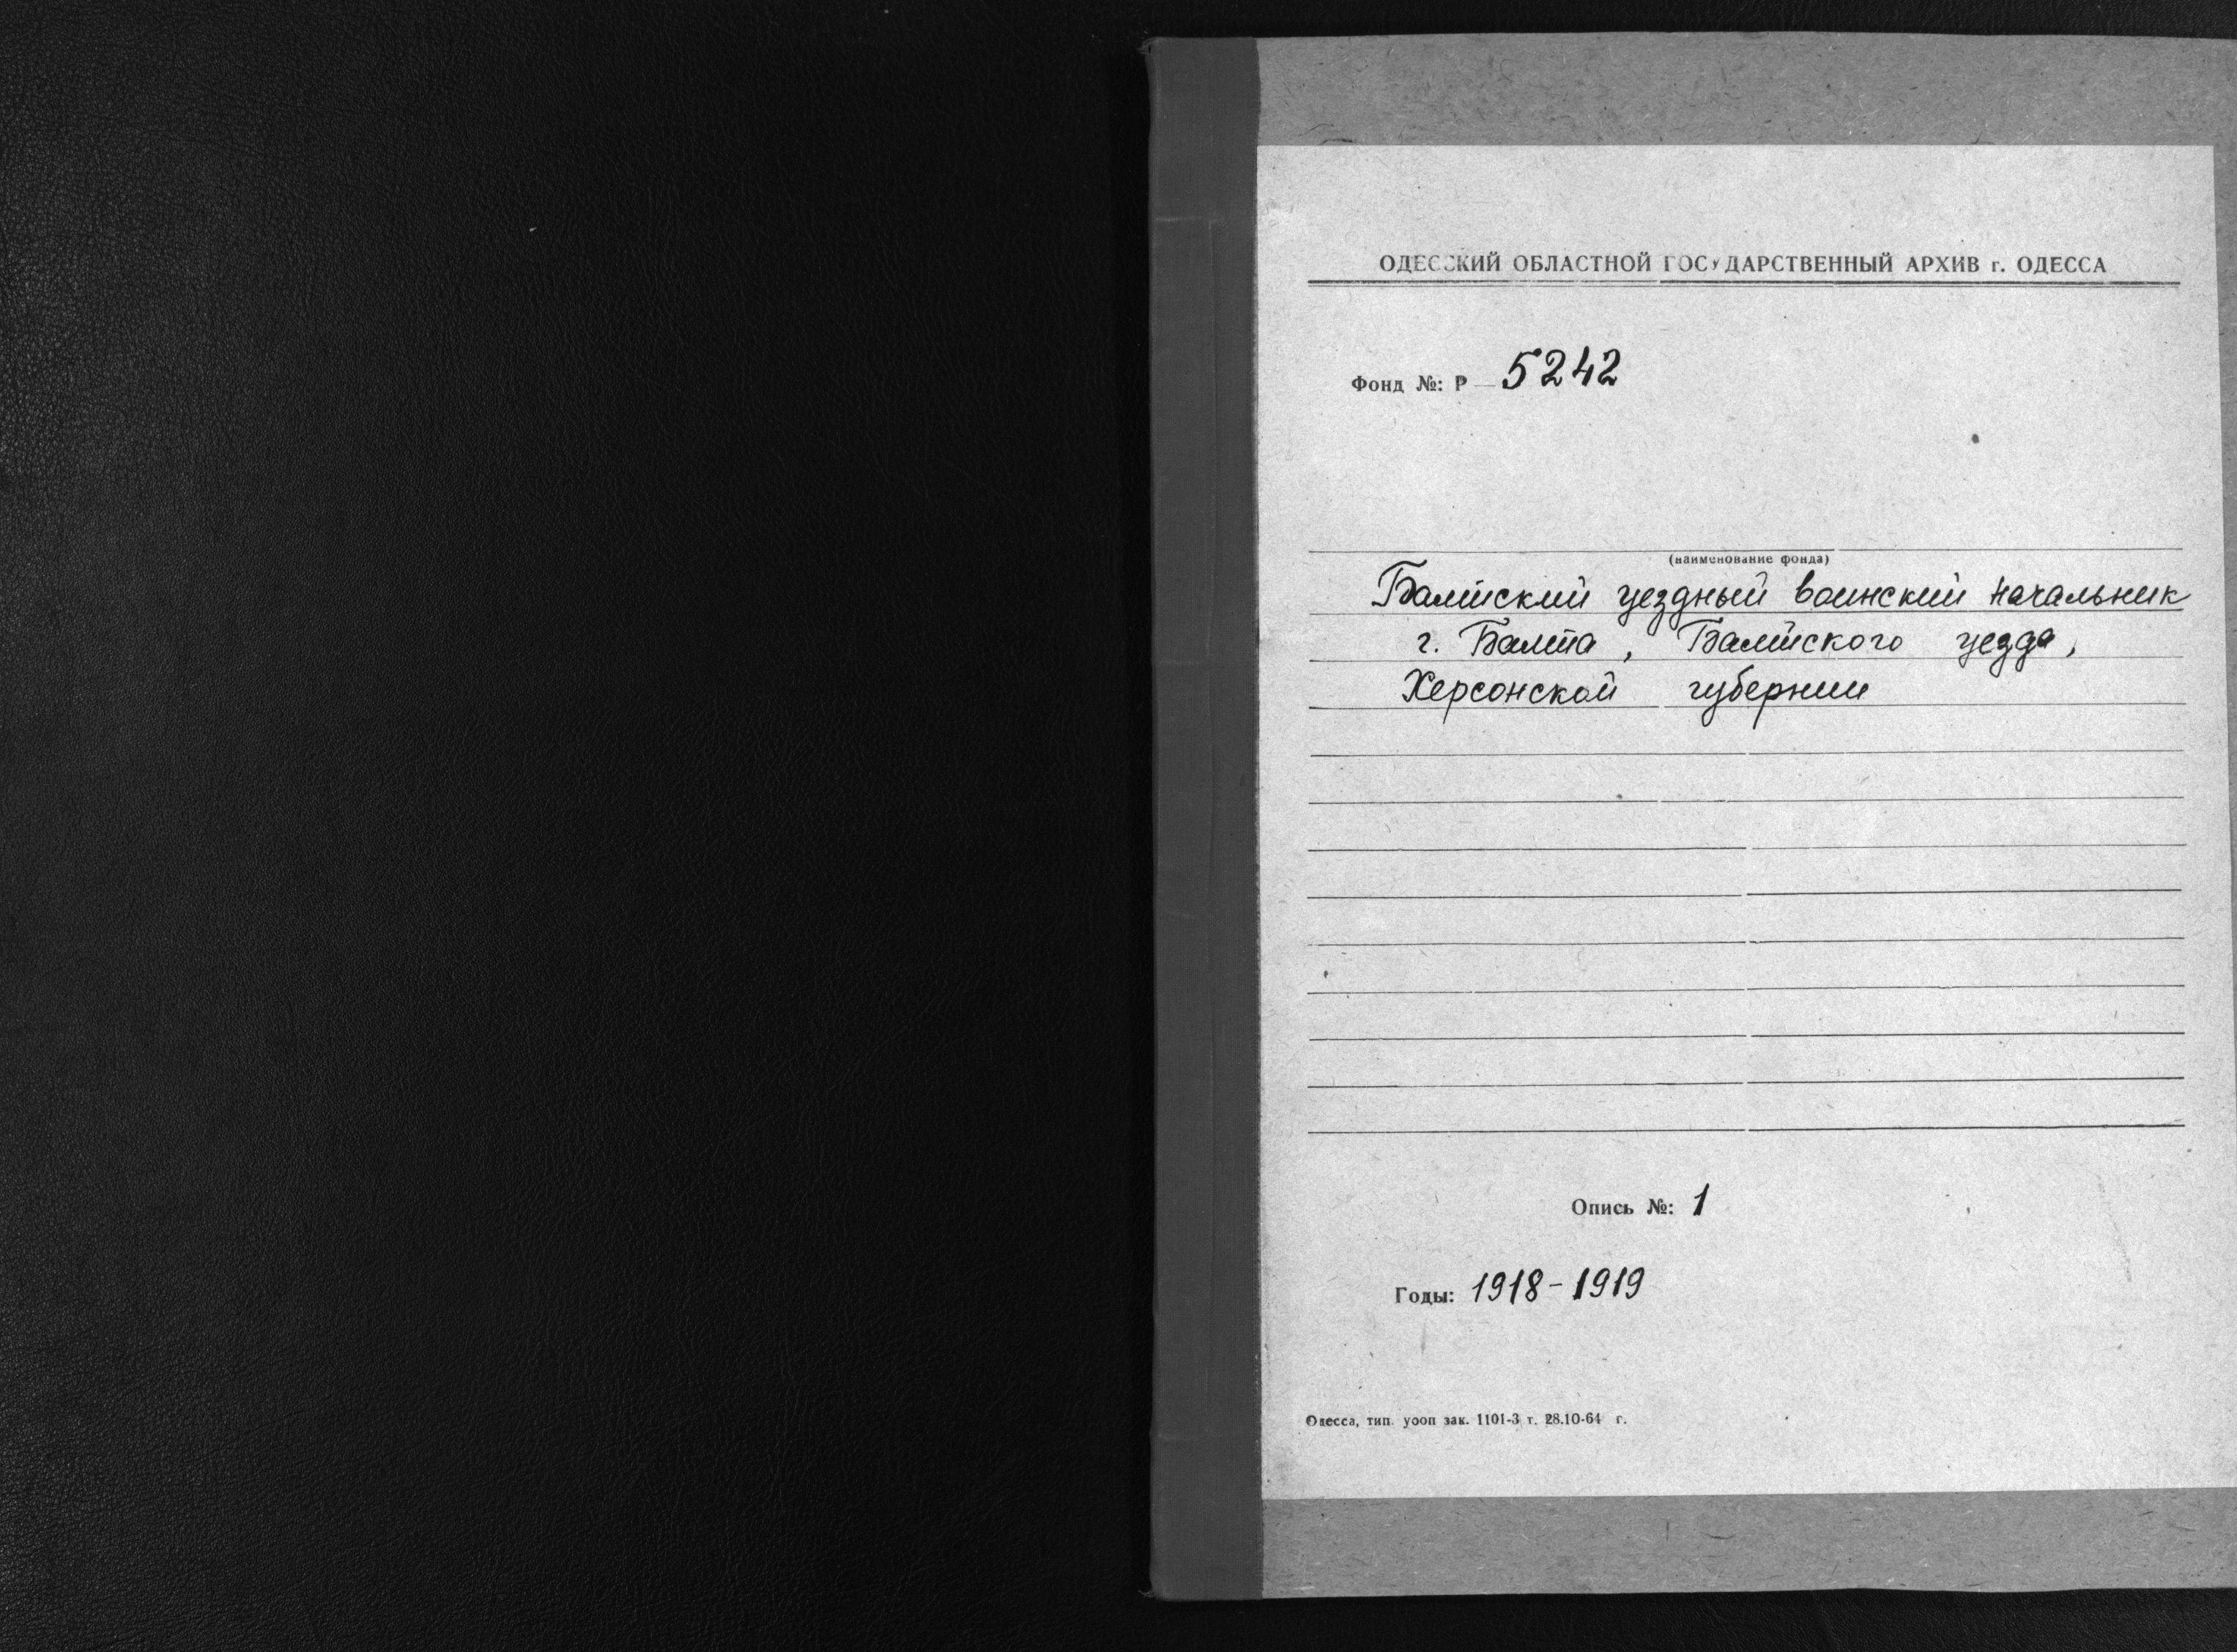 ОДЕССКИЙ ОБЛАСТНОЙ ГОСУДАРСТВЕННЫЙ АРХИВ г. ОДЕССА
Фонд №: Р — 5242
(наименование фонда)
Балтский уездный воинский начальник
г. Балта, Балтского уезда,
Херсонской губернии
Опись №: 1
Годы: 1918-1919
Одесса, тип. уооп зак. 1101-3 т. 28.10-64 г.